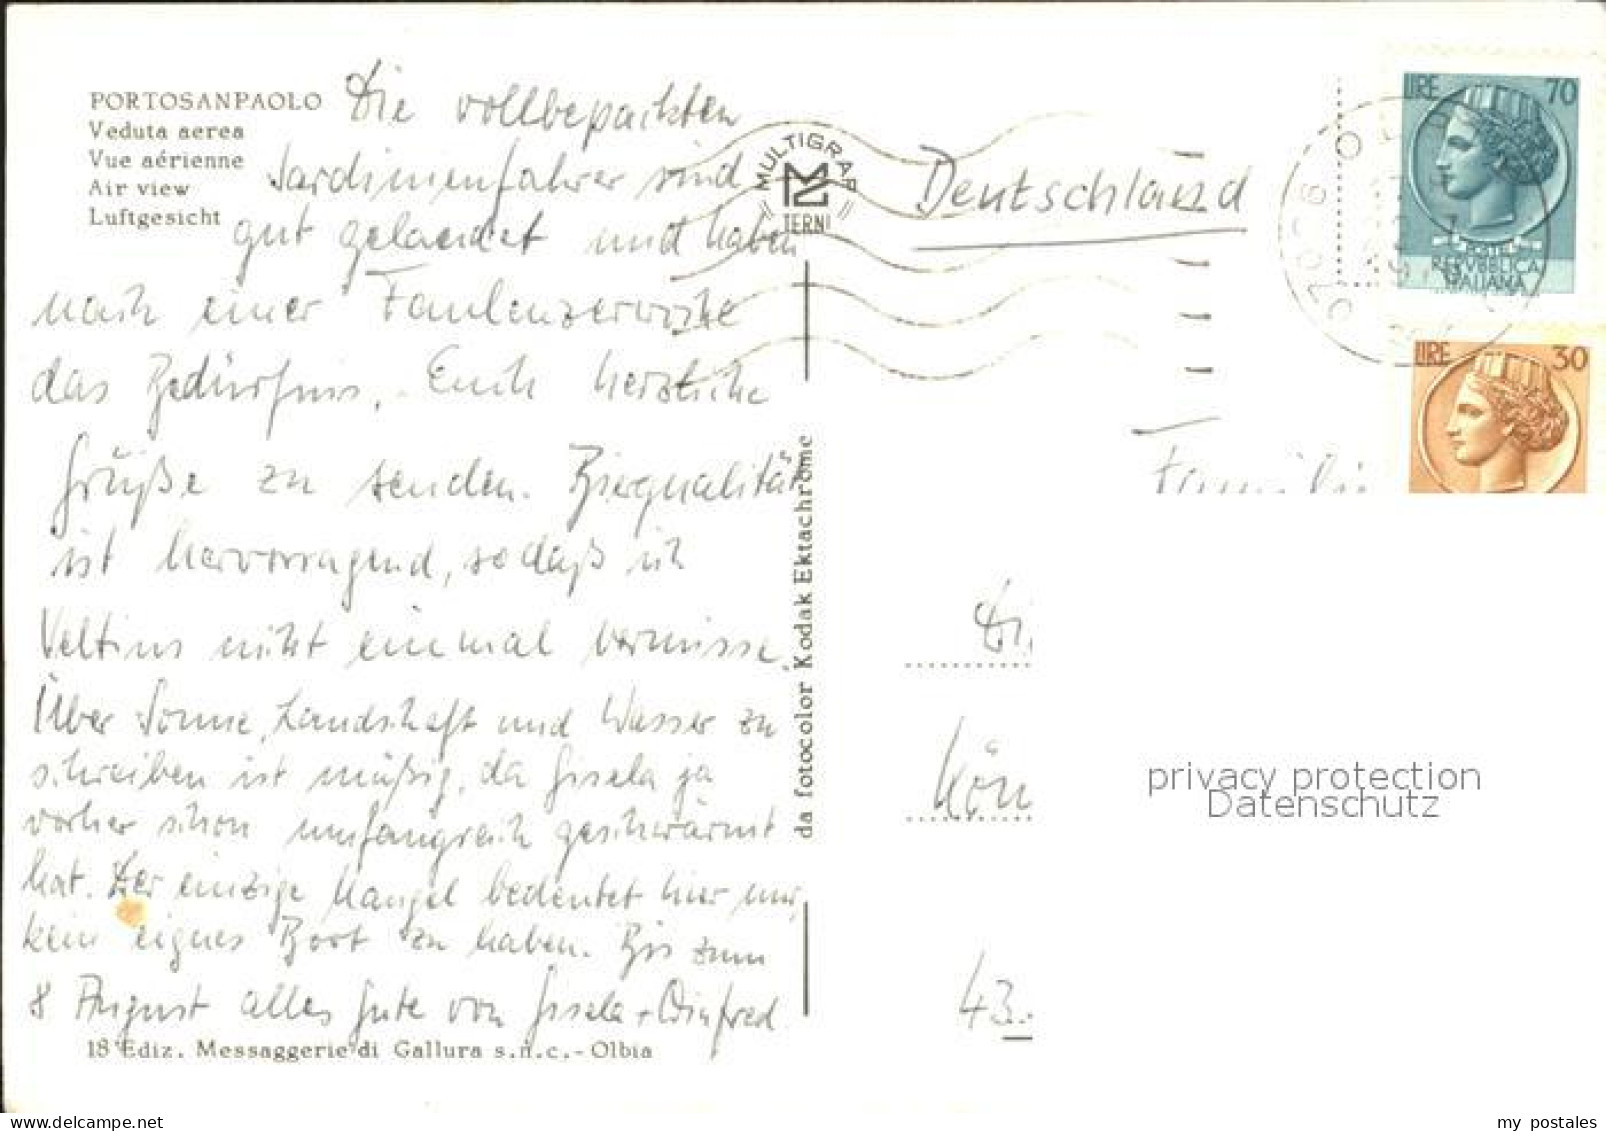 PORTOSANPAOLO
Veduta aerea
Vue aérienne
Air view
Luftgesicht
Die vollbepackten
Sardinienfahrer sind
gut gelaendet und haben
nach einer Faulenzerwoche
das Bedürfnis, Euch herzliche
Grüße zu senden. Bierqualität
ist hervorragend, sodaß ich
Veltins nicht einmal vermisse.
Über Sonne, Landschaft und Wasser zu
schreiben ist müßig, da Gisela ja
vorher schon umfangreich geschwärmt
hat. Der einzige Mangel bedeutet hier nur,
kein eignes Boot zu haben. Bis zum
8 August alles Gute von Gisela + Winfred
18 Ediz. Messaggerie di Gallura s.n.c. - Olbia
da fotocolor Kodak Ektachrome
MULTIGRAF
TERNI
Deutschland
LIRE 70
POSTE
REPVBBLICA
ITALIANA
LIRE 30
07026 O
Famili
Di
Kön
43
privacy protection
Datenschutz
delcampe.net
my_postales